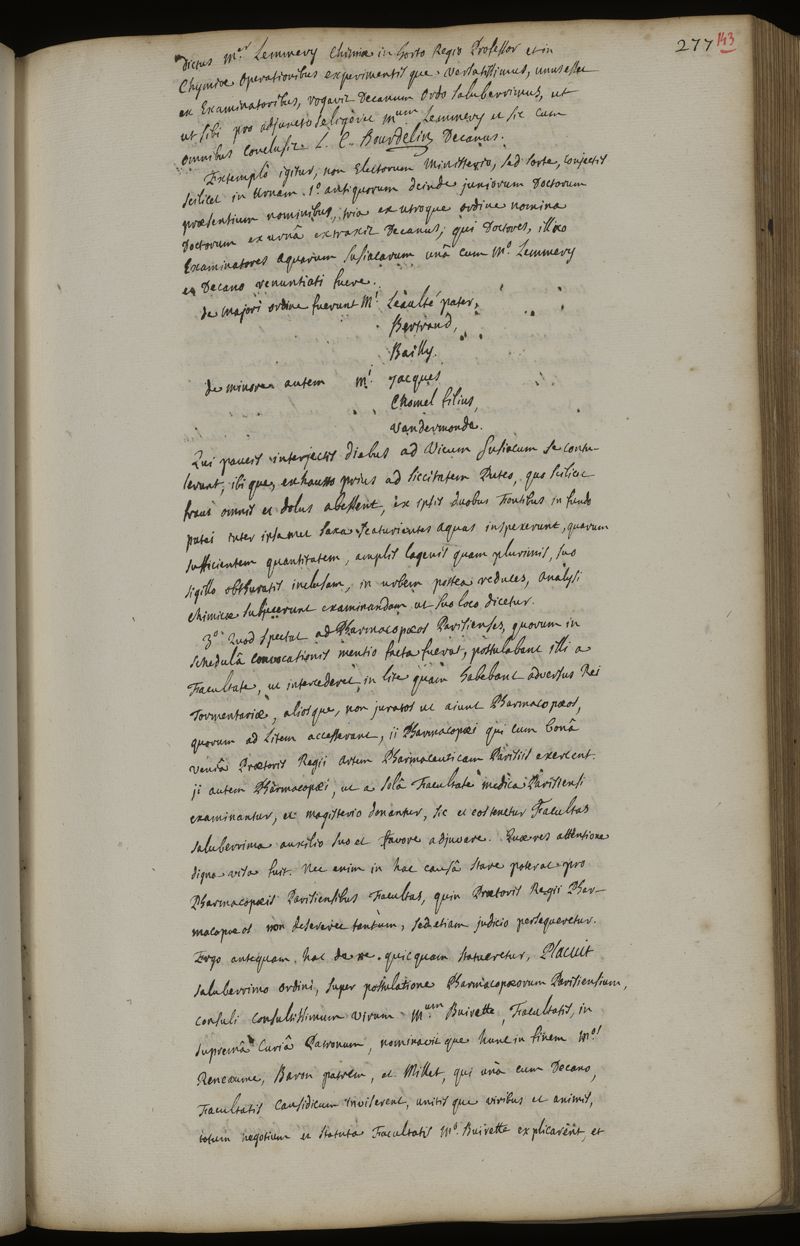 277 143
dictus M.er Lemmery Chimiæ in horto Regio Professor et in
Chymiæ Operationibus experimentisque versatissimus, unus esset
ex Examinatoribus, rogavit Decanum Ordo saluberrimus, ut
ut sibi pro adjuncto seligeret M.um Lemmery et sic cum
omnibus conclusit L. C. Bourdelin Decanus.
Extemplò igitur, non Electorum Ministerio, sed sorte, conjectis
scilicet in Urnam 1.o antiquorum deinde juniorum Doctorum
præsentium nominibus, tria ex utroque ordine nomina
Doctorum ex urnâ extraxit Decanus, qui Doctores, illico
Examinatores Aquarum Susiacarum unâ cum M.o Lemmery
et Decano renuntiati fuere.
de majori ordine fuerunt M.i Leaulté pater,
Bertrand,
Bailly.
de minore autem M.i Jacques
Chomel filius,
Vandermonde.
Qui paucis interjectis diebus ad Vicum Susiacum se contu-
lerunt, ibique, exhausto prius ad siccitatem Puteo, quo scilicet
fraus omnis et dolus abessent, ex ipsis duobus Fontibus in fundo
putei inter infames saxa scaturientes aquas inspexerunt, quarum
sufficientem quantitatem, amplis lagenis quam plurimis, suo
sigillo obthuratis inclusam, in urbem postea reduces, Analysi
chimicæ subjecerunt examinandam ut suo loco dicetur.
3.o Quod spectat ad Pharmacopæos Parisienses, quorum in
schedulâ convocationis mentio facta fuerat, postulabant illi a
Facultate, ut intercederet in lite quam habebant adversus Rei
Tormentariæ, aliosque, non juratos ut aiunt Pharmacopæos,
quorum ad Litem accesserant, ii Pharmacopæi qui cum bonâ
veniâ Prætoris Regii artem Pharmaceuticam Parisiis exercent.
ji autem Pharmacopæi, ut a solâ Facultate medica Parisiensi
examinantur, et magisterio donantur, sic et eos tenetur Facultas
saluberrima auxilio suo et favore adjuvare. Quæ res attentione
digna visa fuit. Nec enim in hac causâ stare poterat pro
Pharmacopæis Parisiensibus Facultas, quin Prætoris Regii Phar-
macopæos non desereret tantum, sed etiam judicio persequeretur.
Ergo antequam hac de re quicquam statueretur, Placuit
saluberrimo ordini, super postulatione Pharmacopæorum Parisiensium,
consuli consultissimum virum M.um Buirette, Facultatis, in
supremâ Curiâ Patronum, nominavitque hunc in finem M.os
Reneaume, Baron patrem, et Millet, qui unâ cum Decano,
Facultatis Causidicum inviserent, unitisque viribus et animis,
totum negotium et statuta Facultatis M.o Buirette explicarent, et